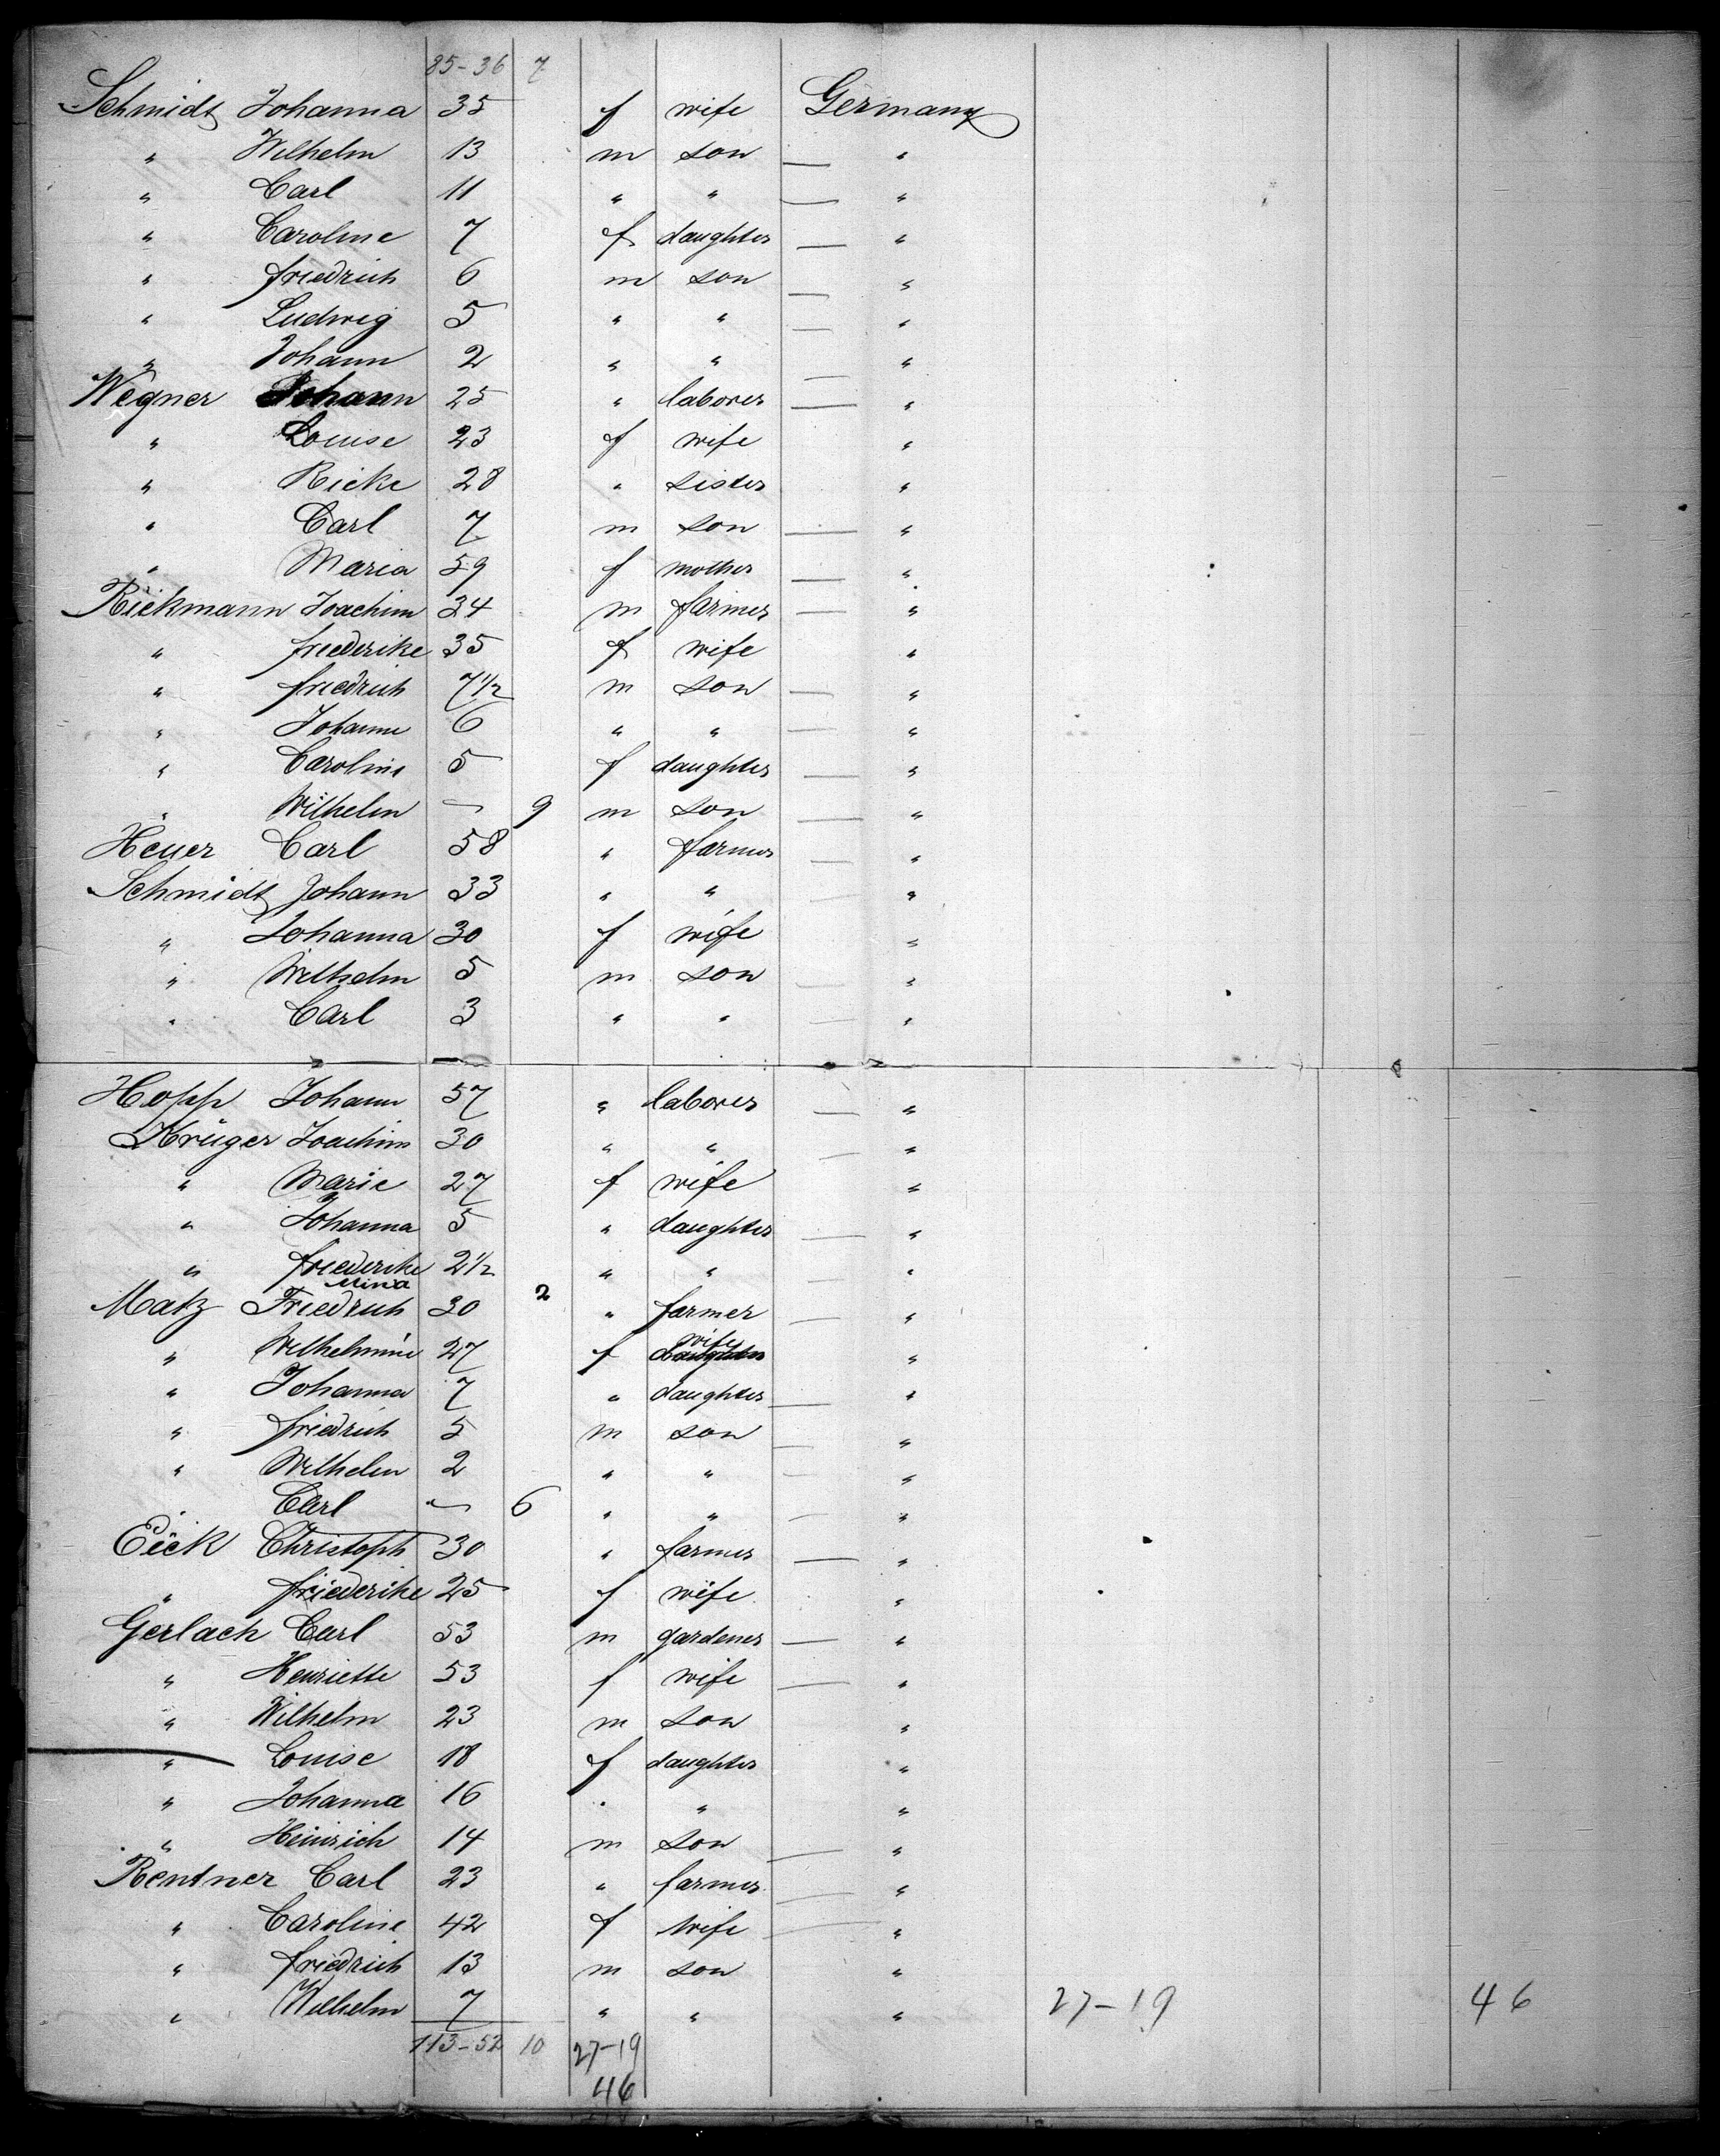 85-36 7
Schmidt Johanna 35 f wife Germany
" Wilhelm 13 m son — "
" Carl 11 " " — "
" Caroline 7 f daughter — "
" Friedrich 6 m son — "
" Ludwig 5 " " — "
" Johann 2 " " — "
Wegner Johann 25 " laborer — "
" Louise 23 f wife "
" Rieke 28 " sister "
" Carl 7 m son — "
" Maria 59 f mother — "
Rickmann Joachim 34 m farmer — "
" Friederike 35 f wife "
" Friedrich 7 1/2 m son — "
" Johann 6 " " — "
" Caroline 5 f daughter — "
" Wilhelm — 9 m son — "
Heuer Carl 58 " farmer — "
Schmidt Johann 33 " " — "
" Johanna 30 f wife "
" Wilhelm 5 m son — "
" Carl 3 " " — "
Hopp Johann 57 " laborer — "
Krüger Joachim 30 " " — "
" Marie 27 f wife "
" Johanna 5 " daughter — "
" Friederike 2 1/2 " " "
Mina 2
Matz Friedrich 30 " farmer — "
wife
" Wilhelmine 27 f daughter "
" Johanna 7 " daughter — "
" Friedrich 5 m son — "
" Wilhelm 2 " " — "
" Carl — 6 " " — "
Eick Christoph 30 " farmer — "
" Friederike 25 f wife "
Gerlach Carl 53 m gardener — "
" Henriette 53 f wife — "
" Wilhelm 23 m son "
" Louise 18 f daughter "
" Johanna 16 " " "
" Heinrich 14 m son — "
Rentner Carl 23 " farmer — "
" Caroline 42 f wife — "
" Friedrich 13 m son "
" Wilhelm 7 " " " 27-19 46
113-52 10 27-19
46